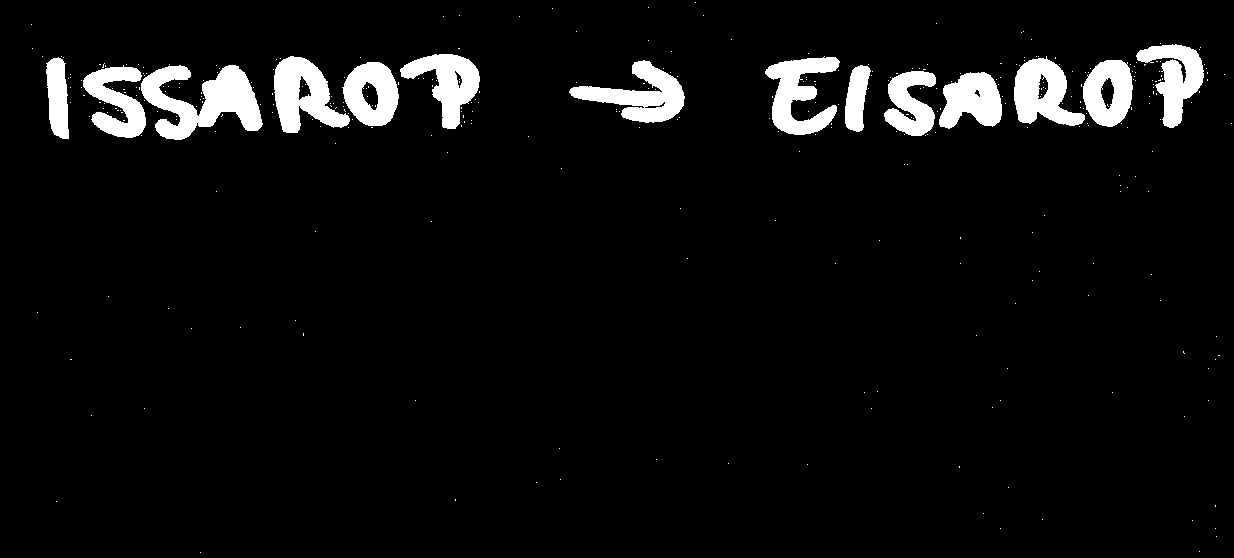 ISSAROP → EISAROP